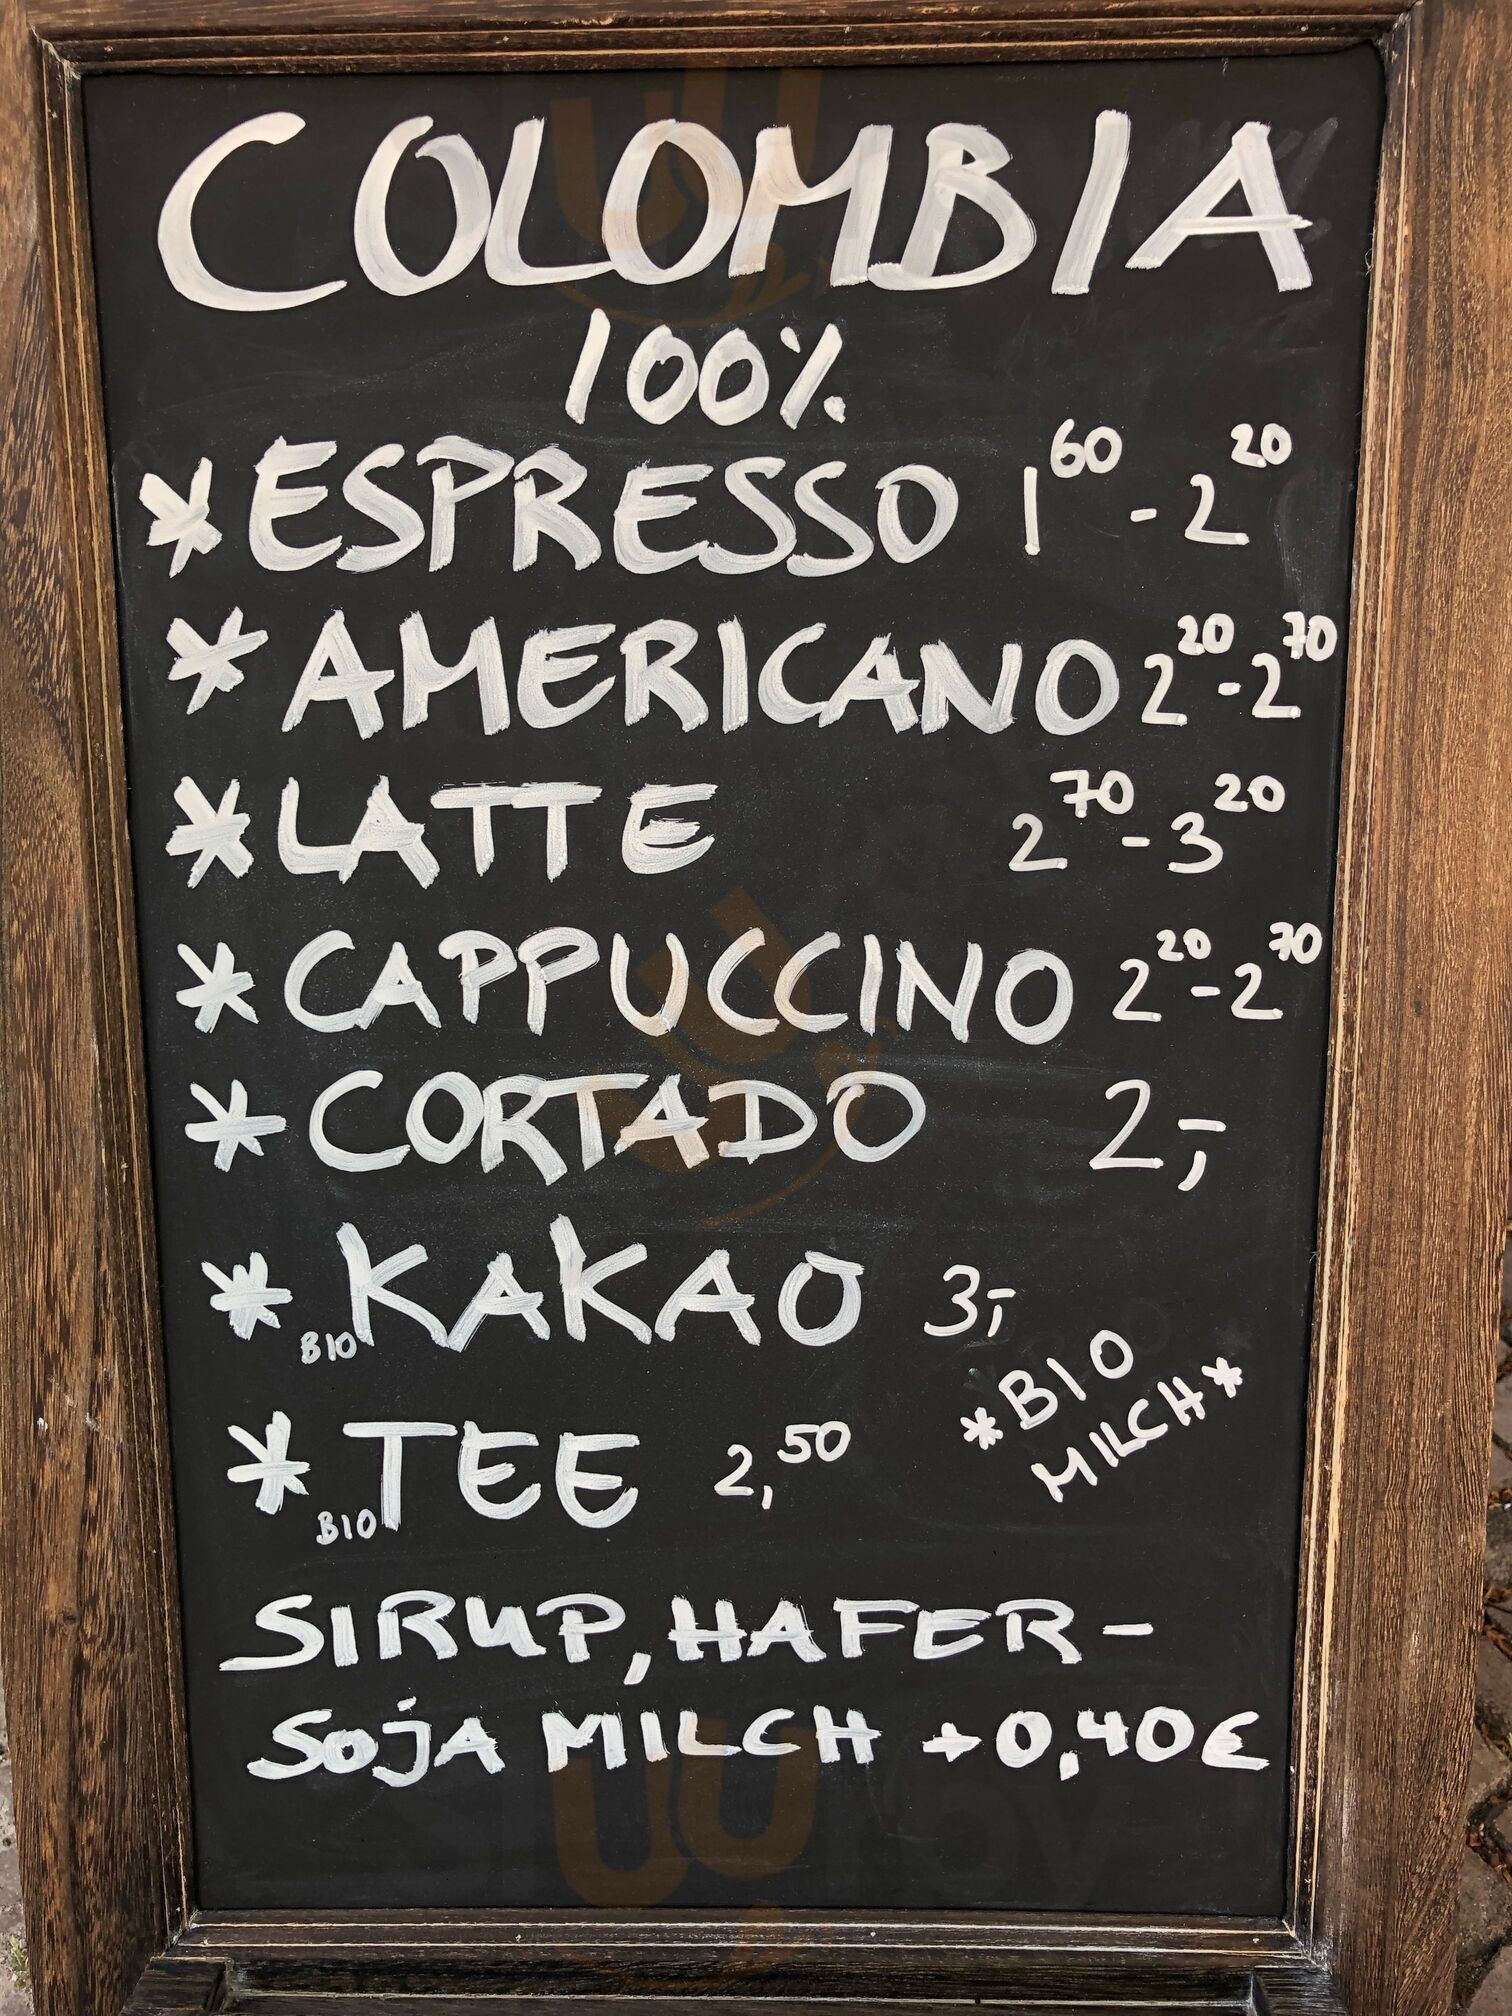 COLOMBIA
100%
* ESPRESSO 1 60 - 2 20
* AMERICANO 2 20 - 2 70
* LATTE 2 70 - 3 20
* CAPPUCCINO 2 20 - 2 70
* CORTADO 2,-
* BIO KAKAO 3,-
* BIO
MILCH *
* BIO TEE 2,50
SIRUP, HAFER-
SOJA MILCH +0,40€